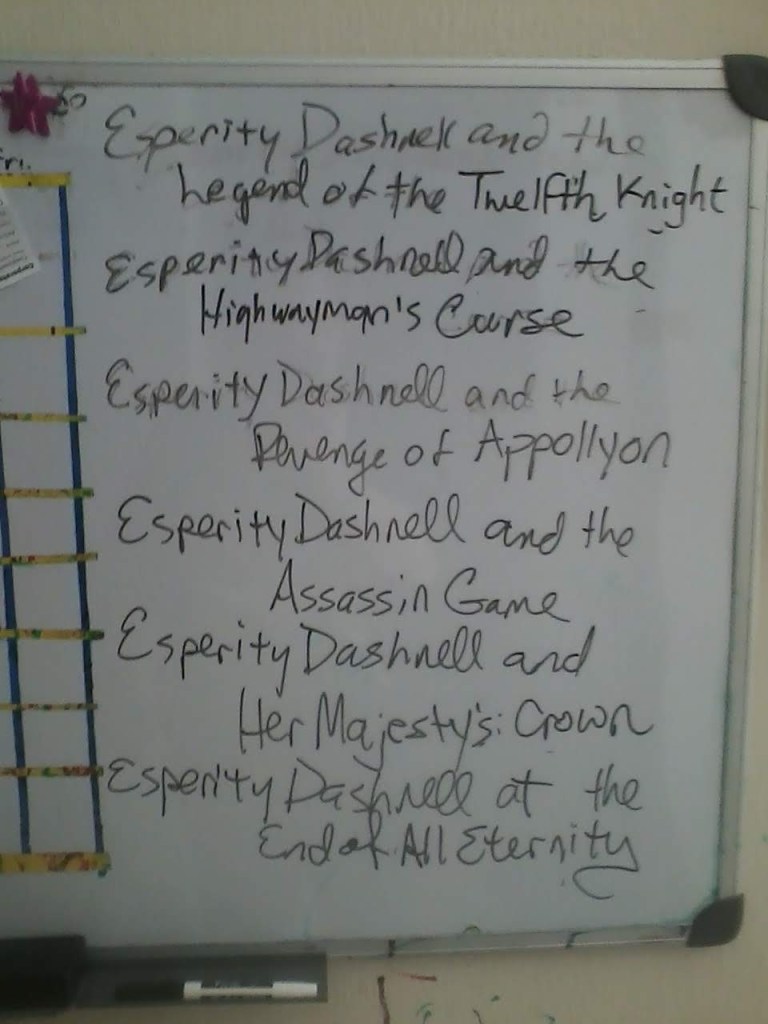 Esperity Dashnell and the
Legend of the Twelfth Knight
Esperity Dashnell and the
Highwayman's Curse
Esperity Dashnell and the
Revenge of Appollyon
Esperity Dashnell and the
Assassin Game
Esperity Dashnell and
Her Majesty's: Crown
Esperity Dashnell at the
End of All Eternity
Fri.